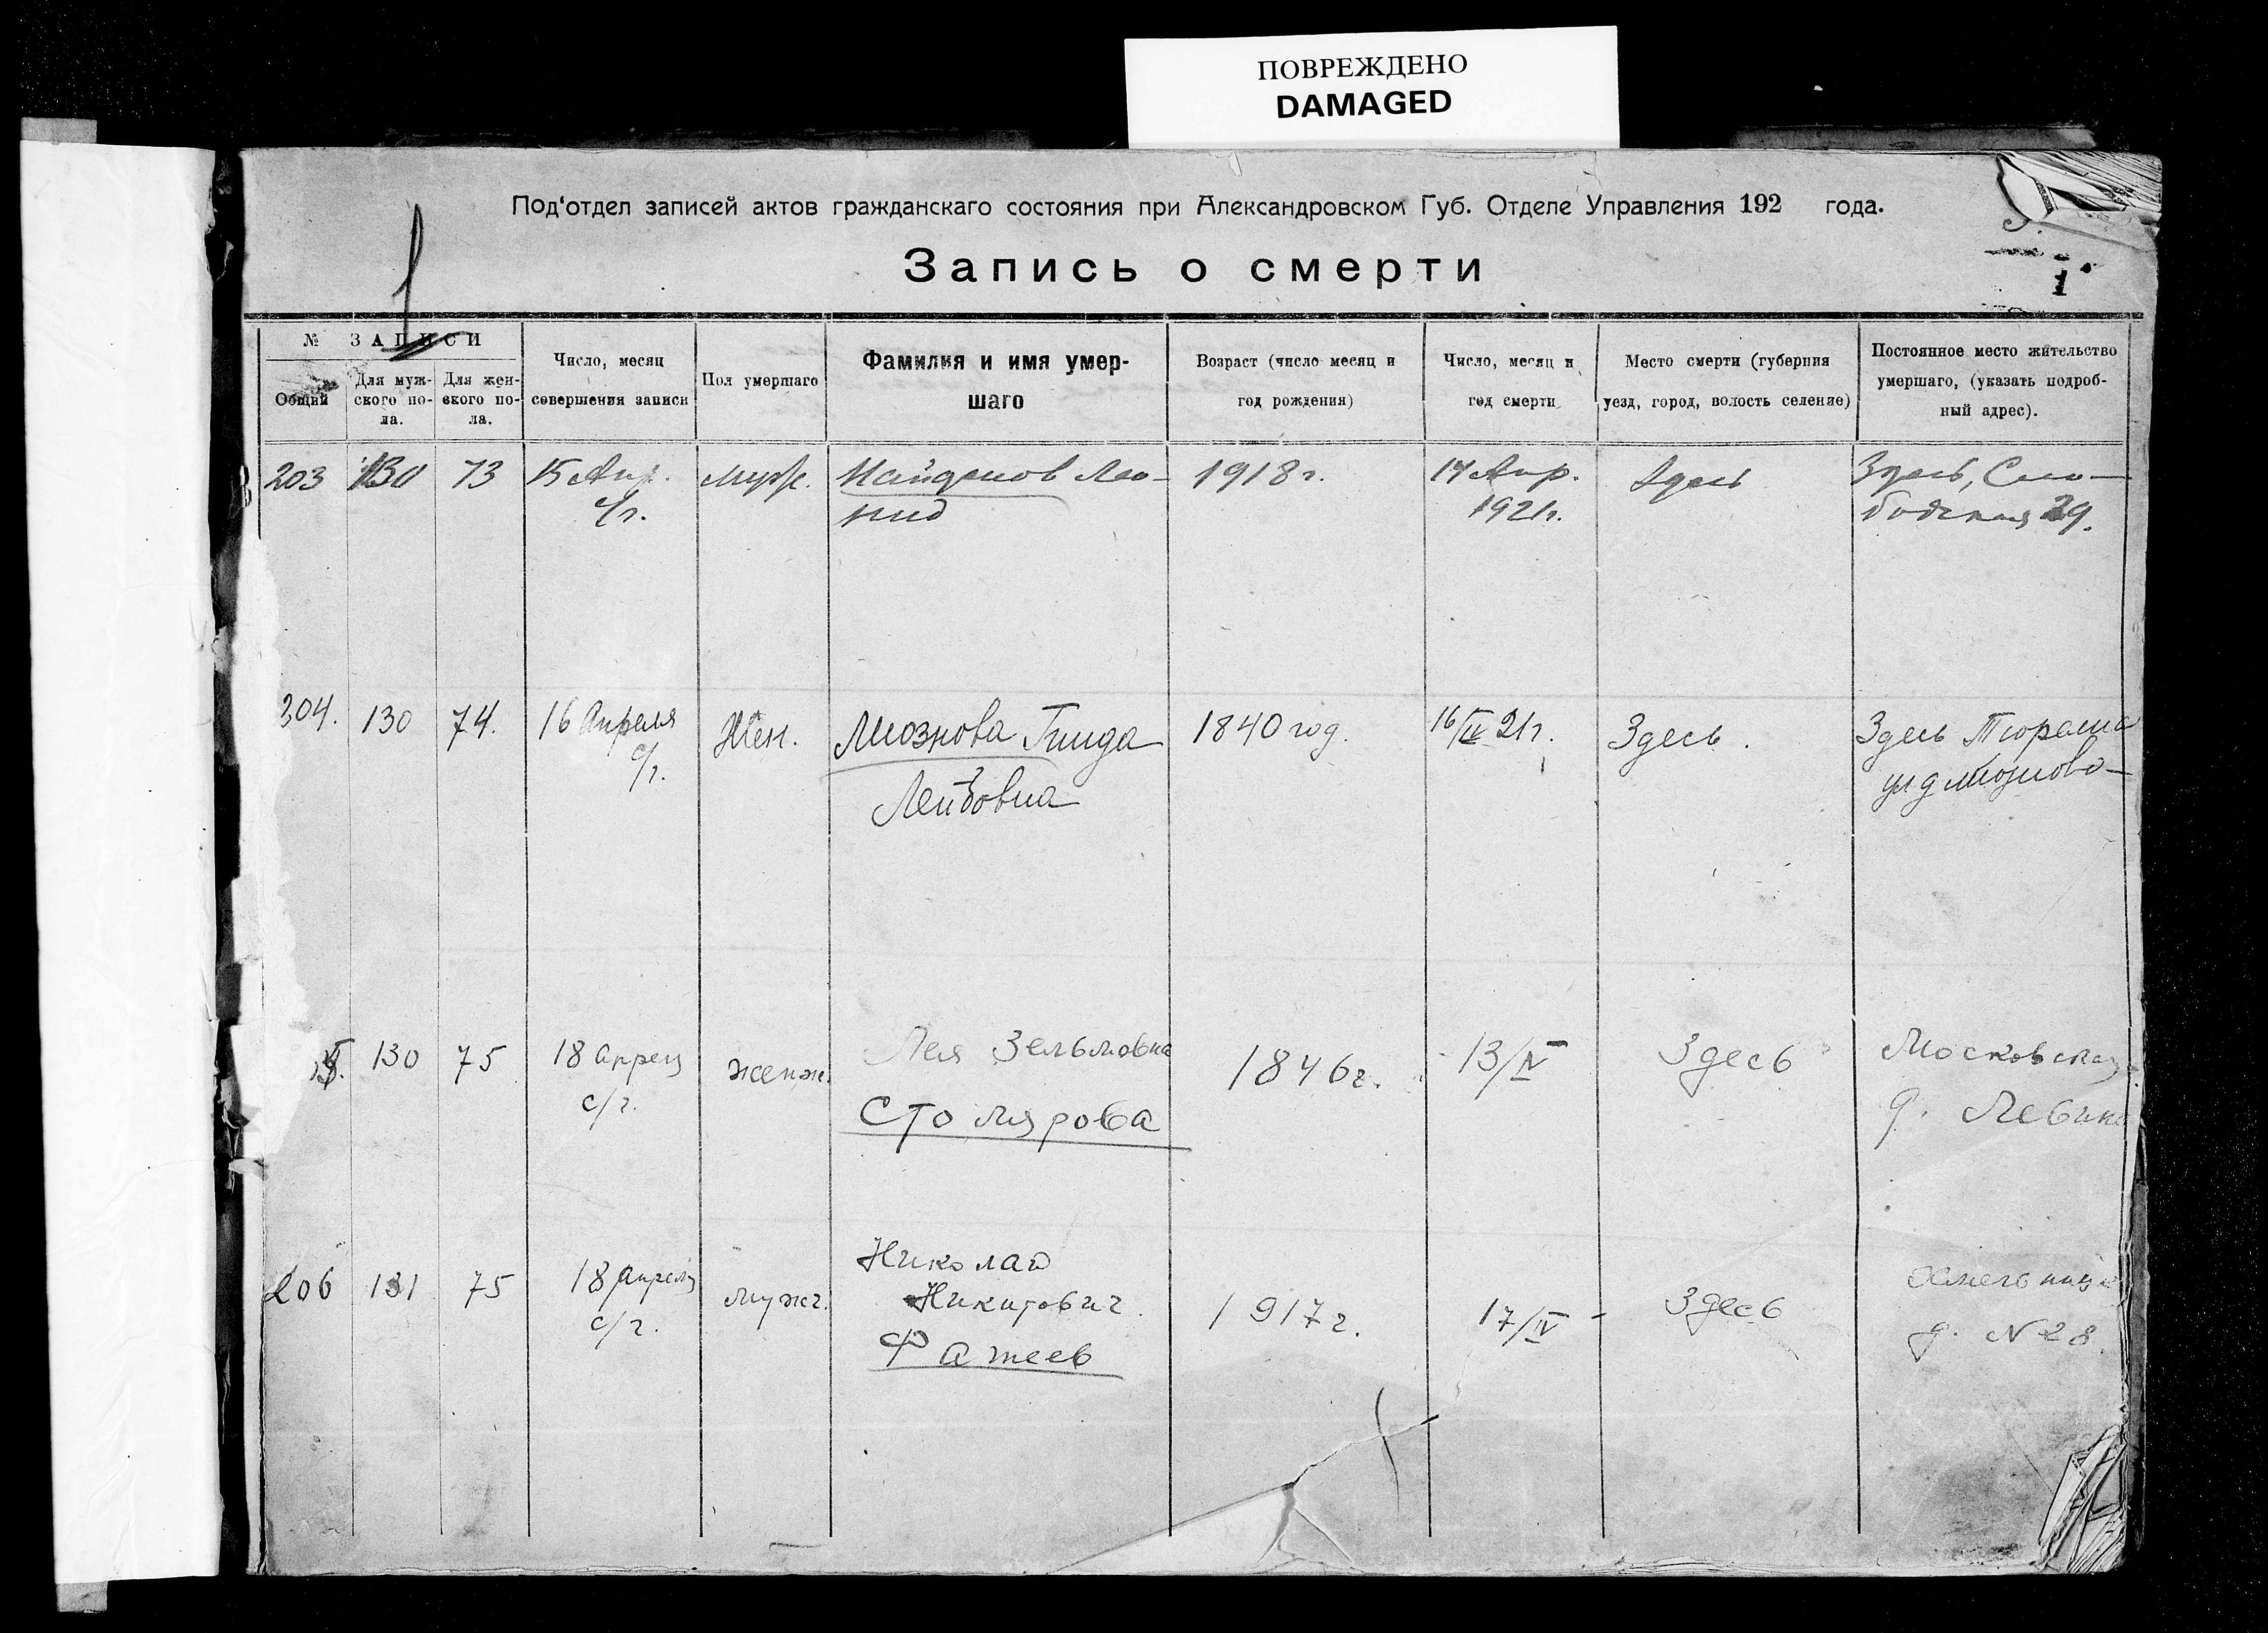 ПОВРЕЖДЕНО
DAMAGED
Под‘отдел записей актов гражданскаго состояния при Александровском Губ. Отделе Управления 192 года.
Запись о смерти
1
№ ЗАПИСИ
Общий
Для муж-
ского по-
ла.
Для жен-
ского по-
ла.
Число, месяц
совершения записи
Пол умершаго
Фамилия и имя умер-
шаго
Возраст (число месяц и
год рождения)
Число, месяц и
год смерти
Место смерти (губерния
уезд, город, волость селение)
Постоянное место жительство
умершаго, (указать подроб-
ный адрес).
203 130 73 15 Апр. Муж. Майданов Лео- 1918 г. 14 Апр. Здесь Здесь, Сло-
с/г. нид 1921 г. бодская 29.
204. 130 74. 16 Апреля Жен. Миознова Гинда 1840 год. 16/IV 21 г. Здесь. Здесь
с/г. Лейбовна ул д
130 75 18 апреля Лея Зельмовна 1846 г. 13/IV Здесь Московская
с/г. Столярова д. Левина
206 131 75 18 апреля мужч. Николай 1917 г. 17/IV - Здесь
с/г. Никитович д. N 28
Фатеев